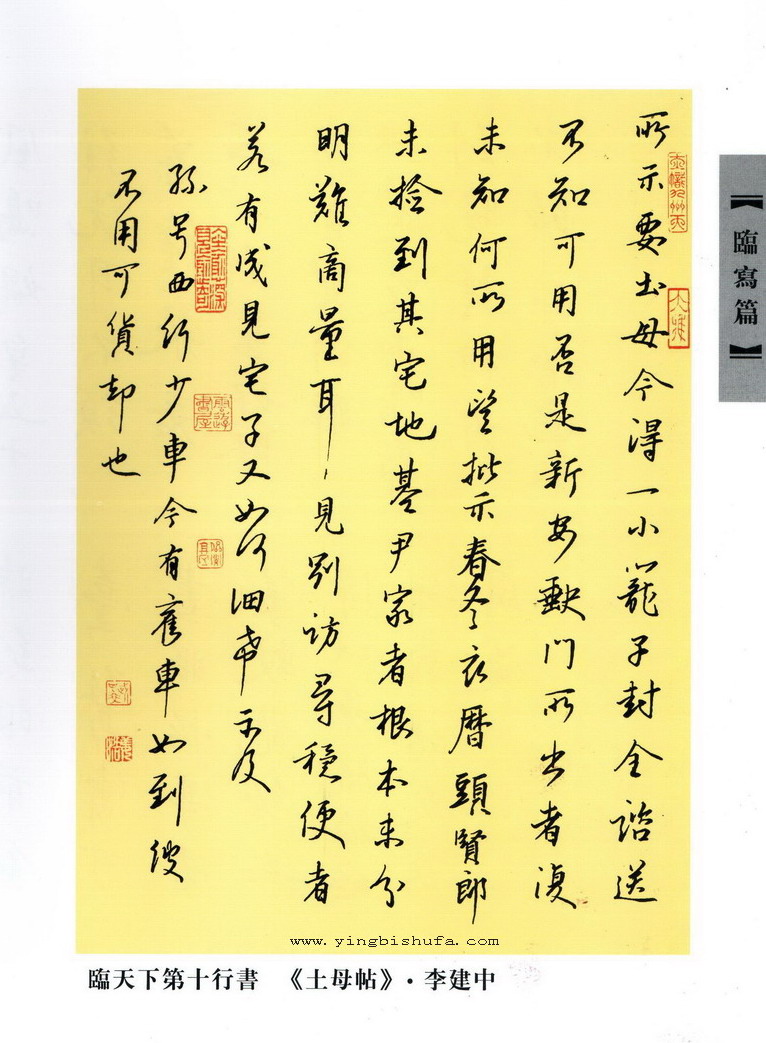 所示要土母今得一小籠子封全諮送
不知可用否是新安缺門所出者復
未知何所用望批示春冬衣曆頭賢郎
未撿到其宅地基尹家者根本未分
明難商量耳見別訪尋穩便者
若有成見宅子又如何細希示及
孫号西行少車今有舊車如到彼
不用可貨却也
【臨寫篇】
www.yingbishufa.com
臨天下第十行書 《土母帖》·李建中